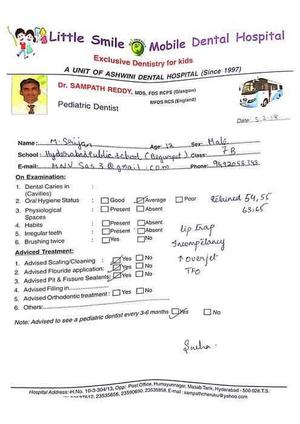 Little Smile Mobile Dental Hospital
Exclusive Dentistry for kids
A UNIT OF ASHWINI DENTAL HOSPITAL (Since 1997)
Dr. SAMPATH REDDY, MDS, FDS RCPS (Glasgow)
MFDS RCS (England)
Pediatric Dentist
Date: 5.2.18
Name: M. Srijan Age: 12 Sex: Male
School: Hyderabad Public School (Begumpet) Class: 7B
E-mail: @gmail.com Phone:
On Examination:
1. Dental Caries in (Cavities)
2. Oral Hygiene Status : Good Average Poor Retained 54, 55
3. Physiological Spaces : Present Absent 63, 65
4. Habits : Present Absent
5. Irregular teeth : Present Absent Lip trap
6. Brushing twice : Yes No Incompetancy
Adviced Treatment: ↑ overjet
1. Advised Scaling/Cleaning : Yes No TFO
2. Advised Flouride application : Yes No
3. Advised Pit & Fissure Sealants : Yes No
4. Advised Filling in
5. Advised Orthodontic treatment : Yes No
6. Others:
Note: Advised to see a pediatric dentist every 3-6 months Yes No
Hospital Address: H.No. 10-3-304/13, Opp: Post Office, Humayunnagar, Masab Tank, Hyderabad - 500 028. T.S.
23535656, 23590690, 23535858, E-mail: sampathcheruku@yahoo.com